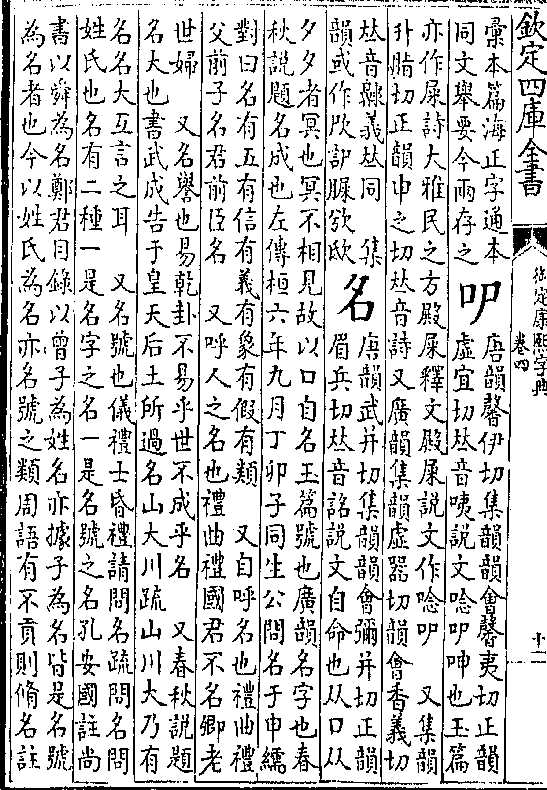 欽定四庫全書
御定康熙字典
卷四
十一
彙本篇海正字通本
同文舉要今兩存之
㕧
唐韻馨伊切集韻韻會馨夷切正韻
虛宜切𠀤音咦說文唸㕧呻也玉篇
亦作屎詩大雅民之方殿屎釋文殿屎說文作唸㕧 又集韻
升脂切正韻申之切𠀤音詩又廣韻集韻虛器切韻會香義切
𠀤音齂義𠀤同 集
韻或作
名
唐韻武并切集韻韻會彌并切正韻
眉兵切𠀤音詺說文自命也从口从
夕夕者冥也冥不相見故以口自名玉篇號也廣韻名字也春
秋說題名成也左傳桓六年九月丁卯子同生公問名于申繻
對曰名有五有信有義有象有假有類 又自呼名也禮曲禮
父前子名君前臣名 又呼人之名也禮曲禮國君不名卿老
世婦 又名譽也易乾卦不易乎世不成乎名 又春秋說題
名大也書武成告于皇天后土所過名山大川疏山川大乃有
名名大互言之耳 又名號也儀禮士昏禮請問名疏問名問
姓氏也名有二種一是名字之名一是名號之名孔安國註尚
書以舜為名鄭君目錄以曾子為姓名亦據子為名皆是名號
為名者也今以姓氏為名亦名號之類周語有不貢則脩名註